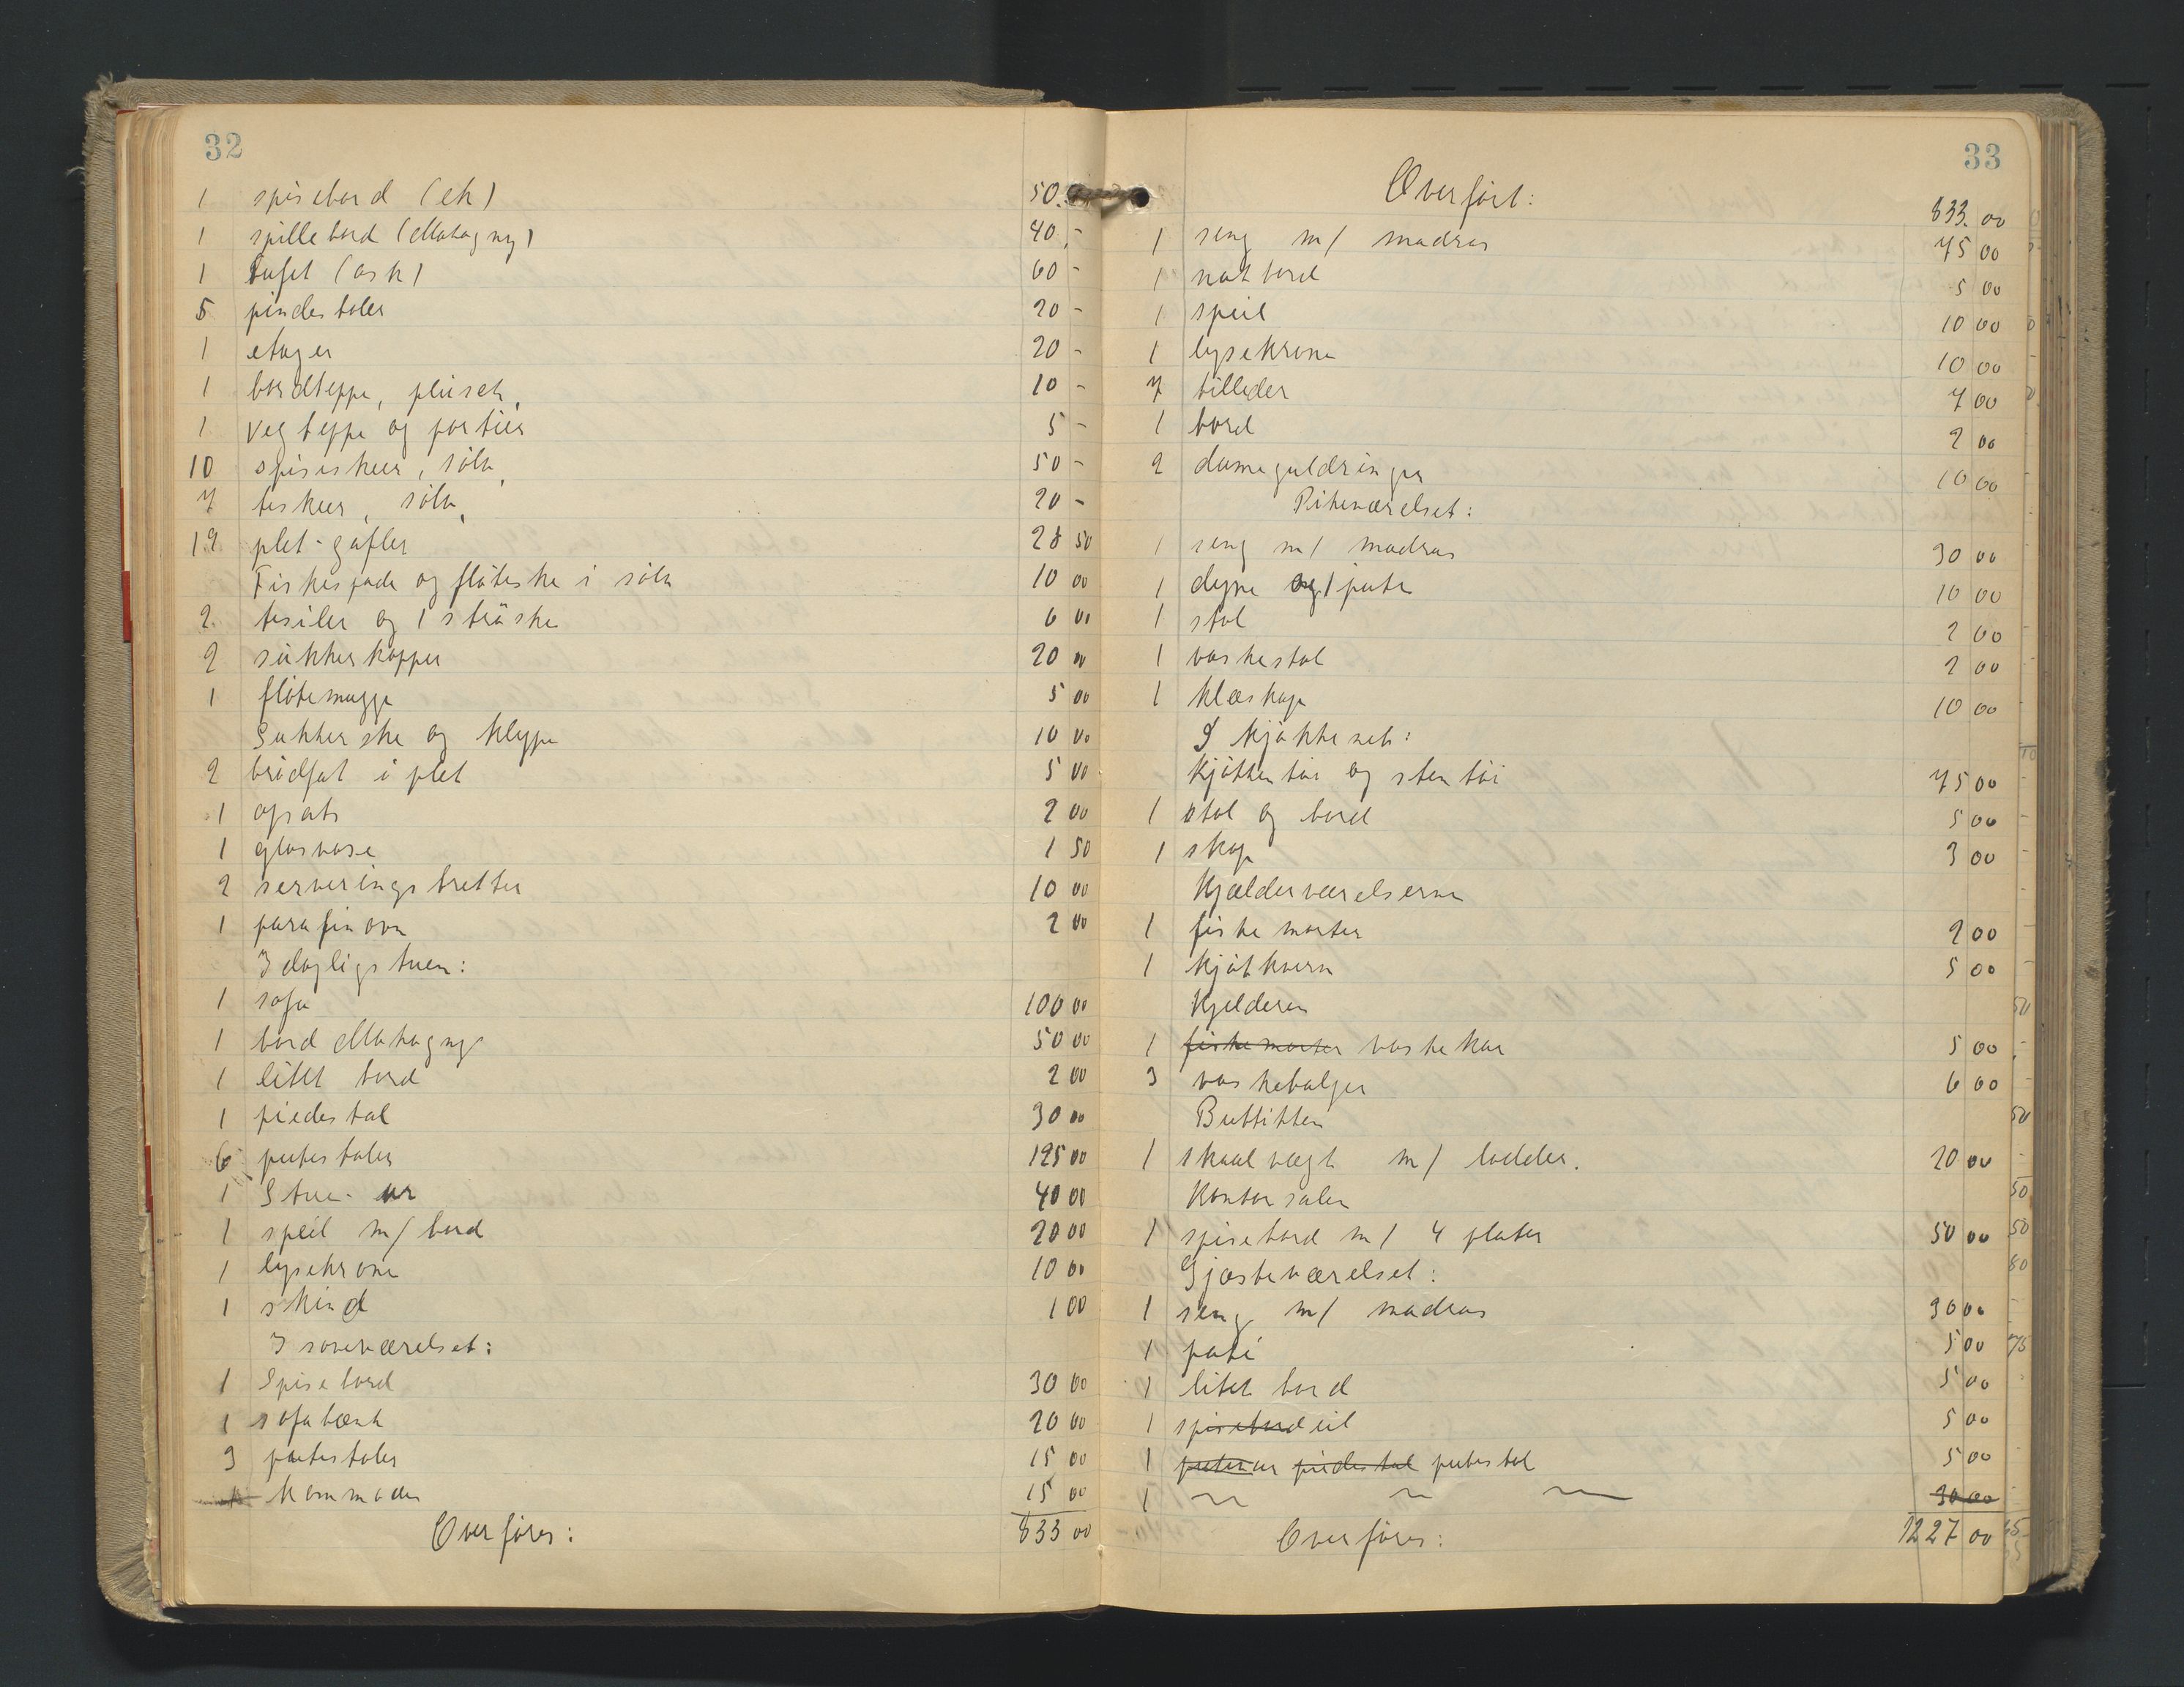 32
1 spisebord (ek) 50.-
1 spillebord (Mahagny) 40,-
1 bufet (ask) 60 -
5 pindestoler 20 -
1 etager 20 -
1 bordteppe, plüsch, 10 -
1 vegteppe og portier 5 -
10 spiseskeer, sölv, 50 -
7 teskeer, sölv, 20 -
19 plet-gafler 28 50
Fiskespade og flöteske i sölv 10 00
2 tesiler og 1 ströske 6 00
2 sukkerkopper 20 00
1 flötemugge 5 00
Sukkerske og klype 10 00
2 brödfat i plet 5 00
1 opsats 2 00
1 glasvase 1 50
2 serveringsbretter 10 00
1 parafinovn 2 00
I dagligstuen:
1 sofa 100 00
1 bord Mahogny 50 00
1 litet bord 2 00
1 piedestal 30 00
6 putestoler 125 00
1 Stue-ur 40 00
1 speil m/ bord 20 00
1 lysekrone 10 00
1 skind 1 00
I soveværelset:
1 Spisebord 30 00
1 sofabænk 20 00
3 putestoler 15 00
kommoder 15 00
Overföres: 833 00
33
Overfört: 833.00
1 seng m/ madras 75 00
1 natbord 5 00
1 speil 10 00
1 lysekrone 10 00
7 billeder 7 00
1 bord 2 00
2 dameguldringer 10 00
Pikeværelset:
1 seng m/ madras 30 00
1 dyne og 1 pute 10 00
1 stol 2 00
1 vaskestol 2 00
1 klæskap 10 00
I kjökkenet:
Kjökkentöi og stentöi 75 00
1 stol og bord 5 00
1 skap 3 00
Kjælderværelserne
1 fiskemorter 2 00
1 kjötkvern 5 00
Kjelderen
1 fiskemorter vaskekar 5 00
3 vaskebaljer 6 00
Buttikken
1 skaalvægt m/ lodder. 20 00
Kontorsalen
1 spisebord m/ 4 plater 50 00
Gjæsteværelset:
1 seng m/ madras 30 00
1 puté 5 00
1 litet bord 5 00
1 spisebord eil 5 00
1 piedestal putestol 5 00
1 30 00
Overföres: 1227 00